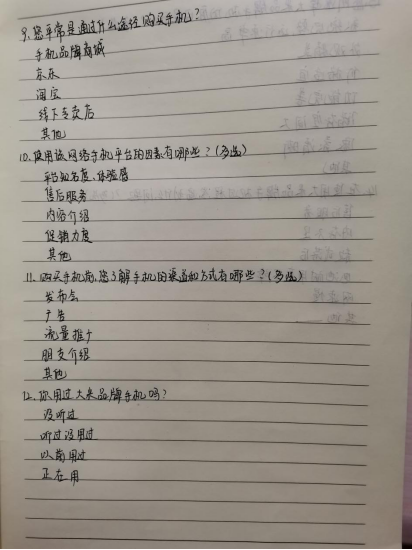 9.您平常是通过什么途径购买手机?
手机品牌商城
京东
淘宝
线下专卖店
其他
10.使用该网络手机平台的因素有哪些?(多选)
平台知名度、体验感
售后服务
内容介绍
促销力度
其他
11.购买手机前,您了解手机的渠道和方式有哪些?(多选)
发布会
广告
流量推广
朋友介绍
其他
12.你用过大米品牌手机吗?
没听过
听过没用过
以前用过
正在用